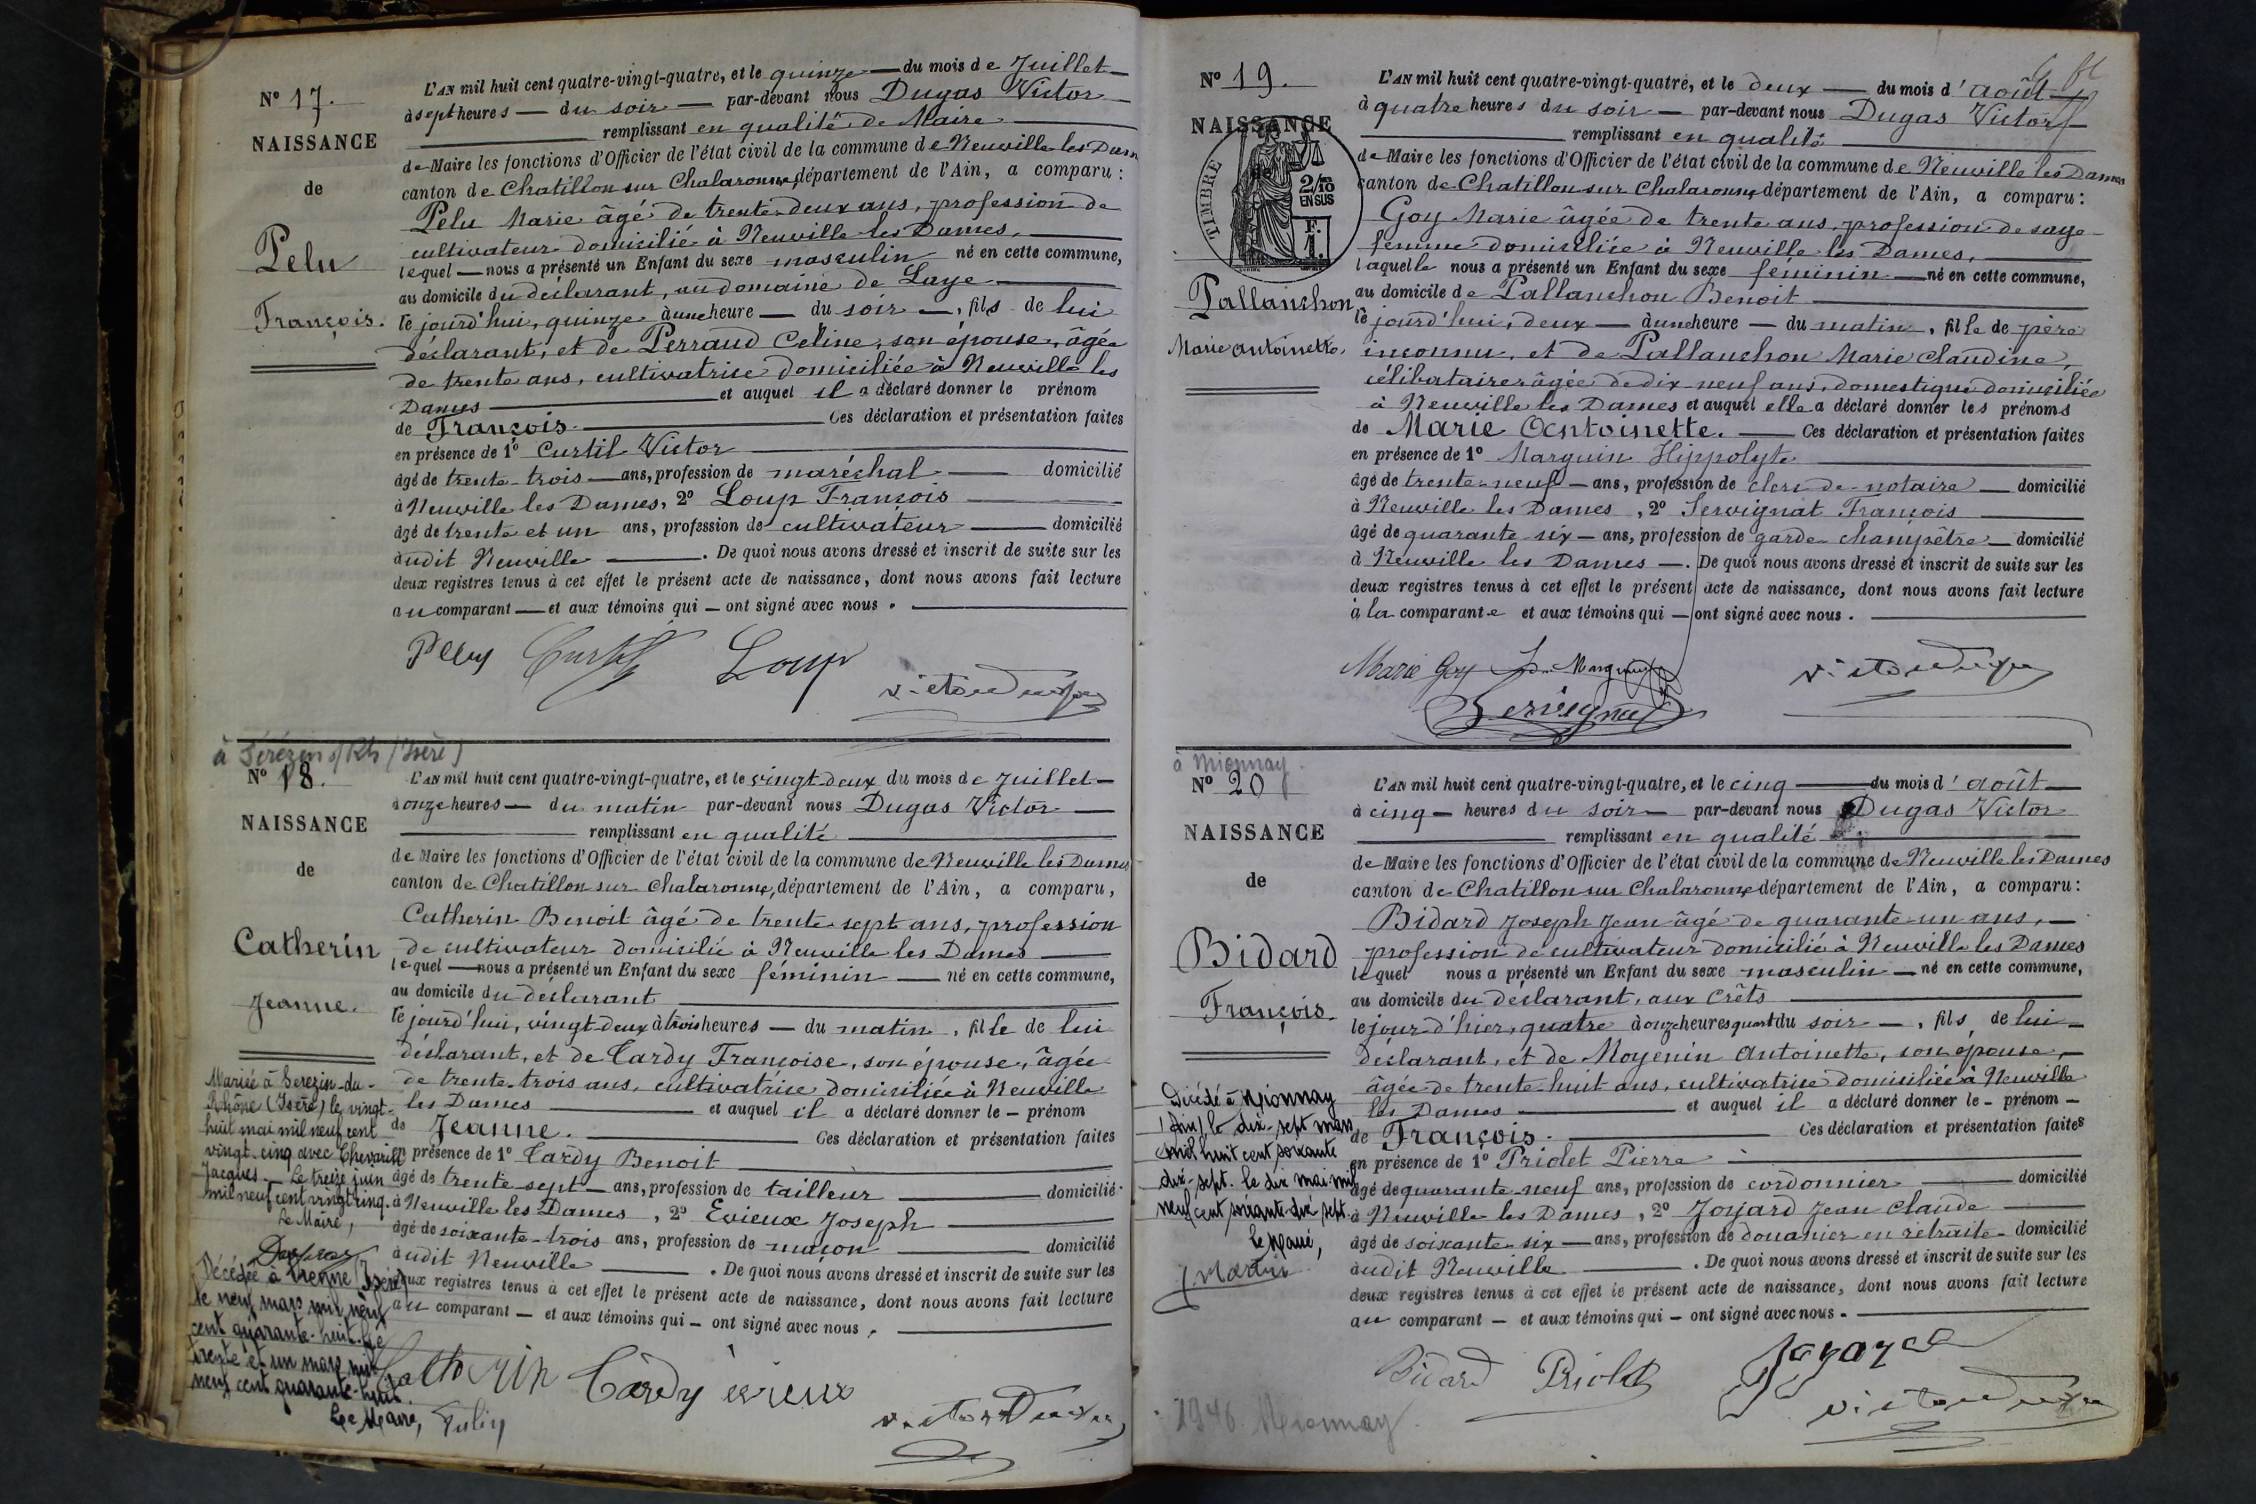 N° 17.
NAISSANCE
de
Pelu
François.
L'AN mil huit cent quatre-vingt-quatre, et le quinze du mois de Juillet
à sept heures du soir par-devant nous Dugas Victor
remplissant en qualité de Maire
de Maire les fonctions d'Officier de l'état civil de la commune de Neuville les Dames
canton de Chatillon sur Chalaronne, département de l'Ain, a comparu :
Pelu Marie âgé de trente-deux ans, profession de
cultivateur domicilié à Neuville les Dames,
lequel nous a présenté un Enfant du sexe masculin né en cette commune,
au domicile du déclarant, au domaine de Laye
le jourd'hui, quinze à une heure du soir, fils de lui
déclarant, et de Perraud Céline, son épouse, âgée
de trente ans, cultivatrice domiciliée à Neuville les
Dames et auquel il a déclaré donner le prénom
de François. Ces déclaration et présentation faites
en présence de 1° Curtil Victor
âgé de trente-trois ans, profession de maréchal domicilié
à Neuville les Dames, 2° Loup François
âgé de trente et un ans, profession de cultivateur domicilié
audit Neuville. De quoi nous avons dressé et inscrit de suite sur les
deux registres tenus à cet effet le présent acte de naissance, dont nous avons fait lecture
au comparant et aux témoins qui ont signé avec nous.
Pelu Curtil Loup
Victor Dugas
à Sérézin s/Rh (Isère)
N° 18.
NAISSANCE
de
Catherin
Jeanne.
L'AN mil huit cent quatre-vingt-quatre, et le vingt-deux du mois de Juillet
à onze heures du matin par-devant nous Dugas Victor
remplissant en qualité
de Maire les fonctions d'Officier de l'état civil de la commune de Neuville les Dames
canton de Chatillon sur Chalaronne, département de l'Ain, a comparu,
Catherin Benoit âgé de trente sept ans, profession
de cultivateur domicilié à Neuville les Dames
lequel nous a présenté un Enfant du sexe féminin né en cette commune,
au domicile du déclarant
le jourd'hui, vingt-deux à trois heures du matin, fille de lui
déclarant, et de Cardy Françoise, son épouse, âgée
de trente-trois ans, cultivatrice domiciliée à Neuville
les Dames et auquel il a déclaré donner le prénom
de Jeanne. Ces déclaration et présentation faites
en présence de 1° Cardy Benoit
âgé de trente-sept ans, profession de tailleur domicilié
à Neuville les Dames, 2° Evieux Joseph
âgé de soixante-trois ans, profession de maçon domicilié
audit Neuville. De quoi nous avons dressé et inscrit de suite sur les
deux registres tenus à cet effet le présent acte de naissance, dont nous avons fait lecture
au comparant et aux témoins qui ont signé avec nous.
Catherin Cardy evieux
Victor Dugas
Mariée à Serezin-du-
Rhône (Isère) le vingt-
huit mai mil neuf cent
vingt-cinq avec
Jacques. Le treize juin
mil neuf cent vingt cinq.
Le Maire,
Décédée à Vienne (Isère)
le neuf mars mil neuf
cent quarante-huit. Le
trente et un mars mil
neuf cent quarante-huit.
Le Maire,
N° 19.
NAISSANCE
TIMBRE
2/10
EN SUS
F.
1.
Pallanchon
Marie Antoinette.
L'AN mil huit cent quatre-vingt-quatre, et le deux du mois d'août
à quatre heures du soir par-devant nous Dugas Victor
remplissant en qualité
de Maire les fonctions d'Officier de l'état civil de la commune de Neuville les Dames
canton de Chatillon sur Chalaronne, département de l'Ain, a comparu :
Goy Marie âgée de trente ans, profession de sage-
femme domiciliée à Neuville les Dames,
laquelle nous a présenté un Enfant du sexe féminin né en cette commune,
au domicile de Pallanchon Benoit
le jourd'hui, deux à une heure du matin, fille de père
inconnu, et de Pallanchon Marie Claudine,
célibataire âgée de dix-neuf ans, domestique domiciliée
à Neuville les Dames et auquel elle a déclaré donner les prénoms
de Marie Antoinette. Ces déclaration et présentation faites
en présence de 1° Marguin Hippolyte
âgé de trente-neuf ans, profession de clerc de notaire domicilié
à Neuville les Dames, 2° Servignat François
âgé de quarante six ans, profession de garde champêtre domicilié
à Neuville les Dames. De quoi nous avons dressé et inscrit de suite sur les
deux registres tenus à cet effet le présent acte de naissance, dont nous avons fait lecture
à la comparante et aux témoins qui ont signé avec nous.
Marie Goy Marguin
Victor Dugas
Servignat
à Mionnay.
N° 20
NAISSANCE
de
Bidard
François.
L'AN mil huit cent quatre-vingt-quatre, et le cinq du mois d'août
à cinq heures du soir par-devant nous Dugas Victor
remplissant en qualité
de Maire les fonctions d'Officier de l'état civil de la commune de Neuville les Dames
canton de Chatillon sur Chalaronne, département de l'Ain, a comparu :
Bidard Joseph Jean âgé de quarante-un ans,
profession de cultivateur domicilié à Neuville les Dames
lequel nous a présenté un Enfant du sexe masculin né en cette commune,
au domicile du déclarant, aux Crêts
le jour d'hier, quatre à onze heures quart du soir, fils de lui
déclarant, et de Moyenin Antoinette, son épouse,
âgée de trente-huit ans, cultivatrice domiciliée à Neuville
les Dames et auquel il a déclaré donner le prénom
de François. Ces déclaration et présentation faites
en présence de 1° Priolet Pierre
âgé de quarante neuf ans, profession de cordonnier domicilié
à Neuville les Dames, 2° Joyard Jean Claude
âgé de soixante-six ans, profession de douanier en retraite domicilié
audit Neuville. De quoi nous avons dressé et inscrit de suite sur les
deux registres tenus à cet effet le présent acte de naissance, dont nous avons fait lecture
au comparant et aux témoins qui ont signé avec nous.
Bidard Priolet Joyard
Victor Dugas
Décédé à Mionnay
(Ain) le dix-sept mars
mil huit cent soixante
dix-sept. le dix mai mil
neuf cent soixante dix sept.
Le Maire,
1946. Mionnay